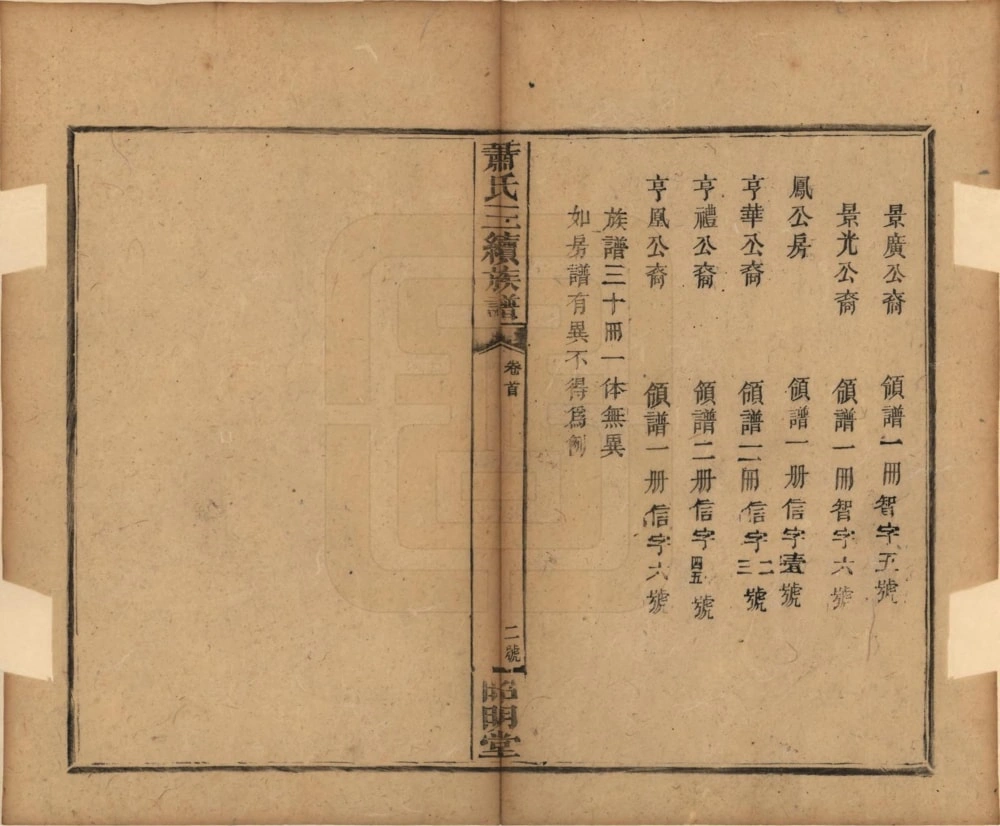 景廣公裔 領譜一冊智字五號
景光公裔 領譜一冊智字六號
鳳公房 領譜一册信字壹號
亨華公裔 領譜二冊信字二三號
亨禮公裔 領譜二册信字四五號
亨凰公裔 領譜一册信字六號
族譜三十冊一体無異
如房譜有異不得爲例
蕭氏三續族譜 卷首 二號 昭明堂